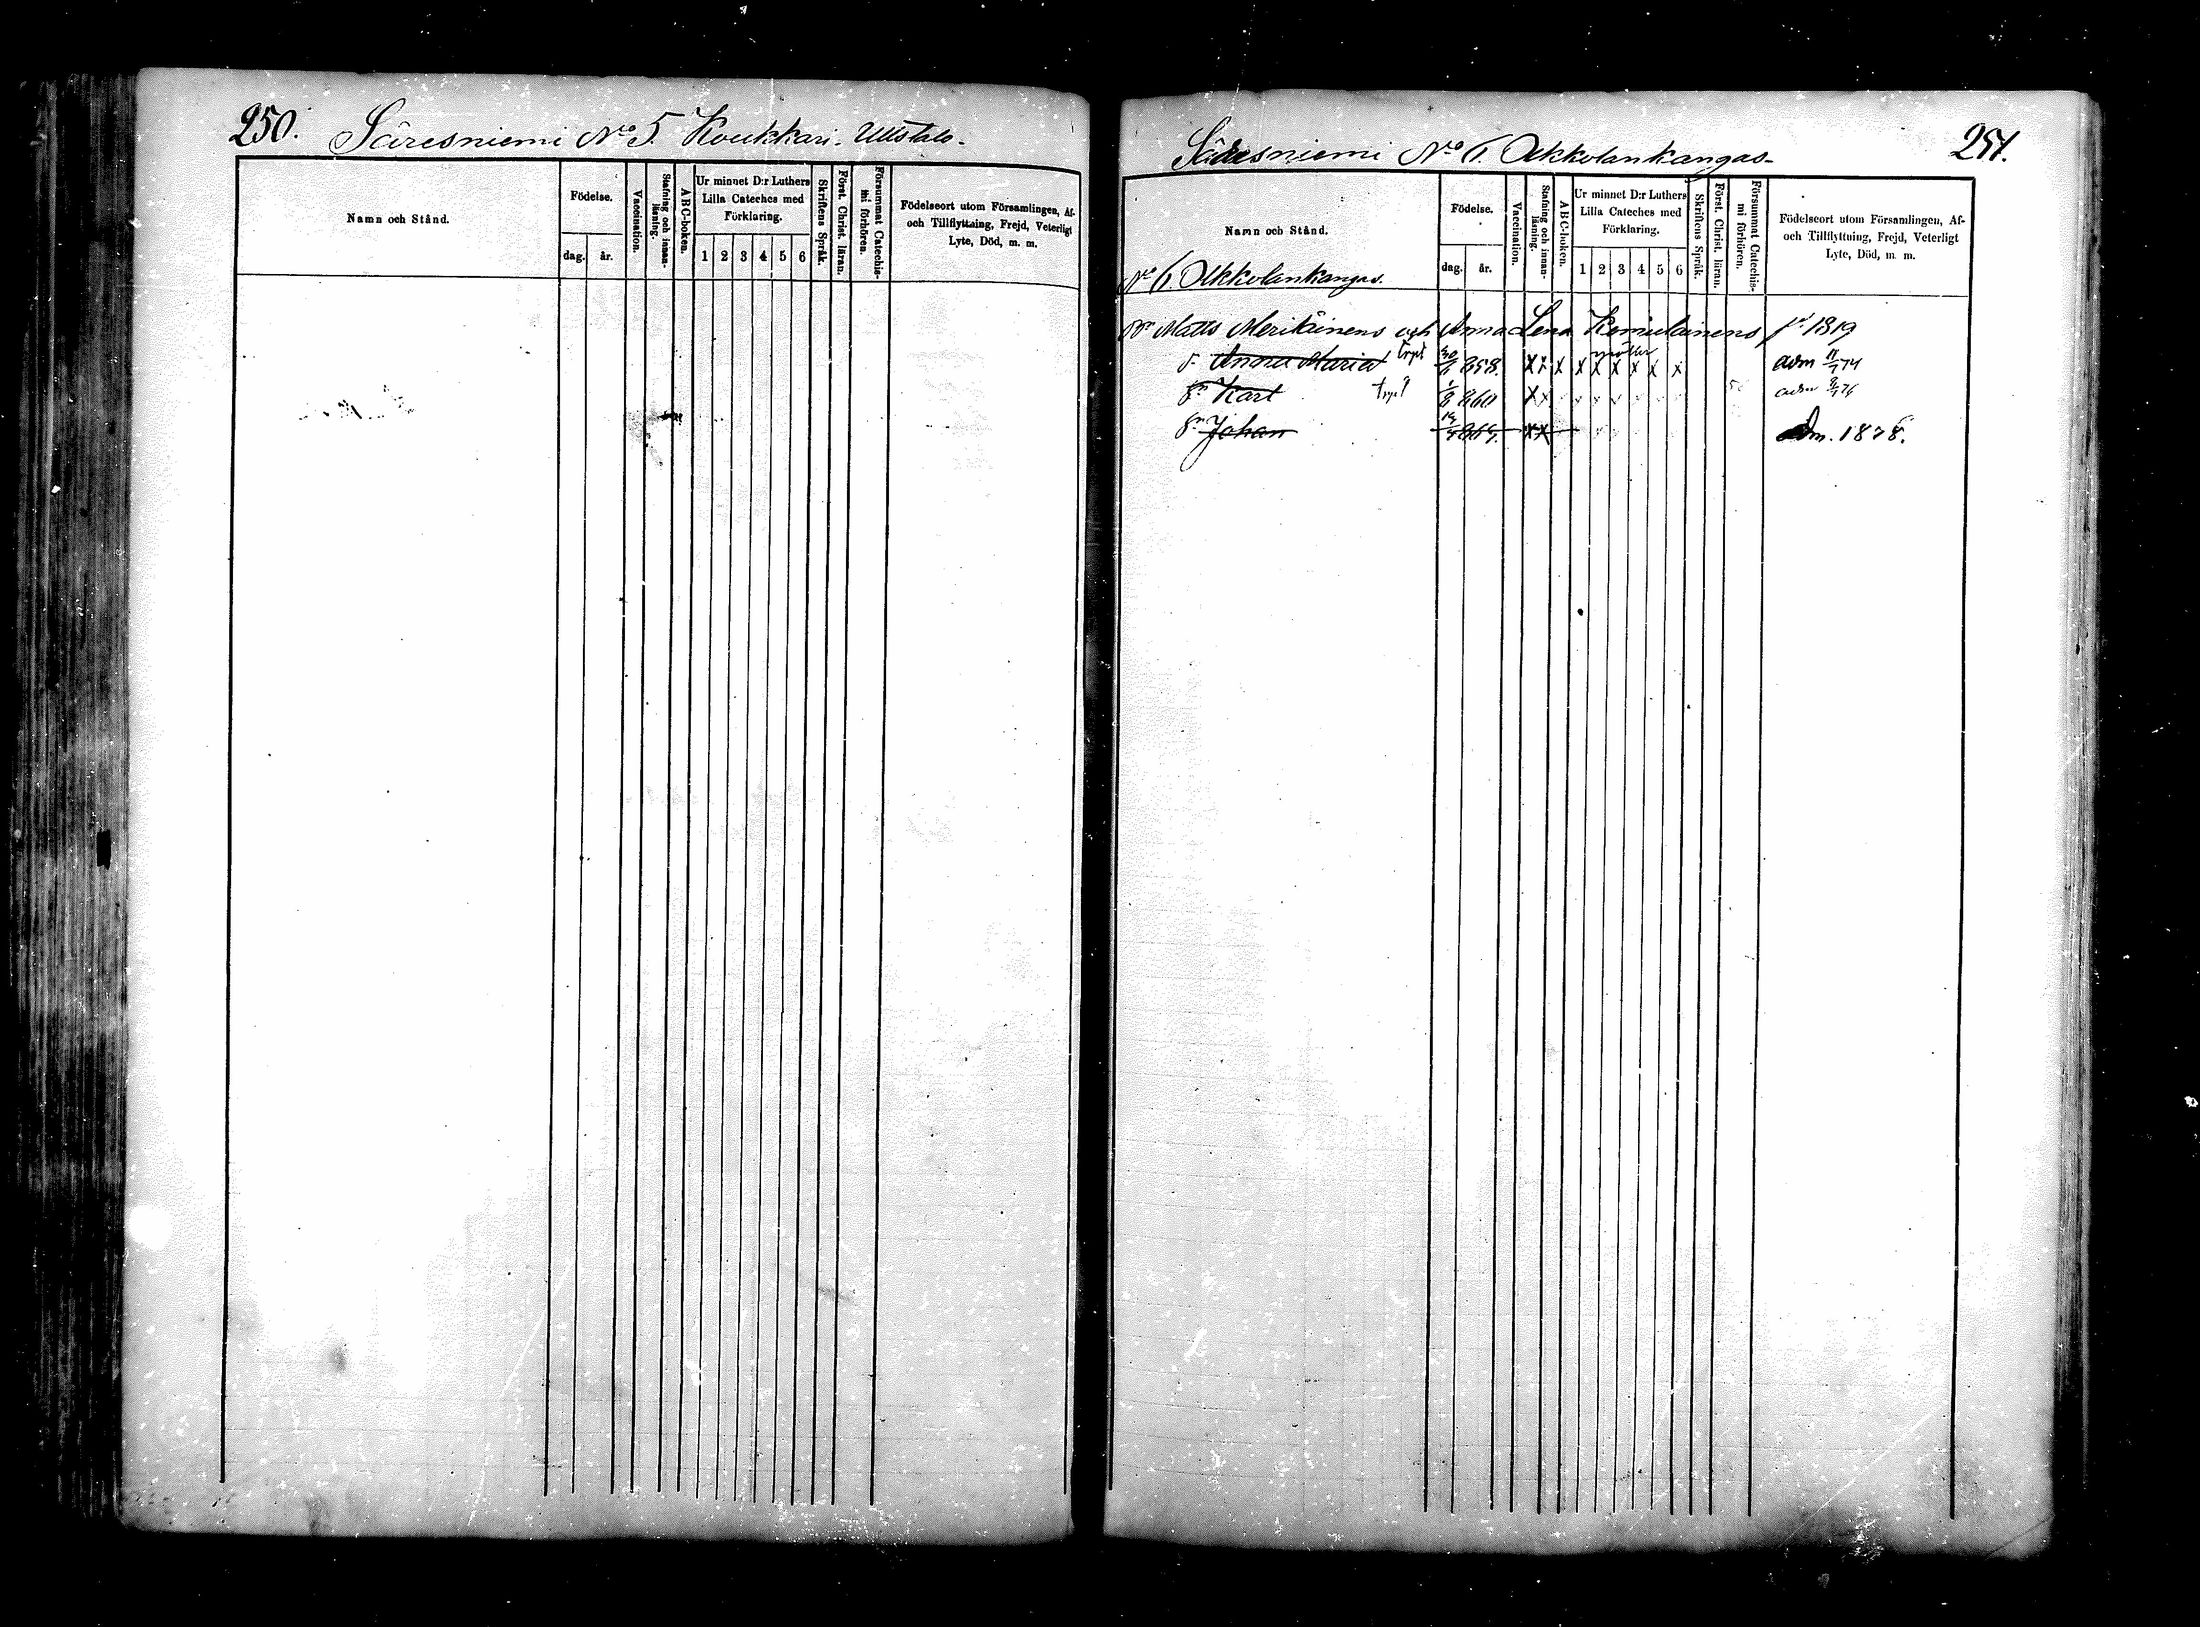 250. Säresniemi No 5. Koukkari. Utistalo.
Namn och Stånd.
Födelse.
dag. år.
Vaccination.
Stafning och innan-läsning.
ABC-boken.
Ur minnet D:r Luthers
Lilla Cateches med
Förklaring.
1 2 3 4 5 6
Skriftens Språk.
Först. Christ. läran.
Försummat Catechis-
mi förhören.
Födelseort utom Församlingen, Af-
och Tillflyttning, Frejd, Veterligt
Lyte, Död, m. m.
Säresniemi No 6. Akkolankangas. 251.
Namn och Stånd.
No 6. Akkolankangas.
Födelse.
dag. år.
Vaccination.
Stafning och innan-
läsning.
ABC-boken.
Ur minnet D:r Luthers
Lilla Cateches med
Förklaring.
1 2 3 4 5 6
Skriftens Språk.
Först. Christ. läran.
Försummat Catechis-
mi förhören.
Födelseort utom Församlingen, Af-
och Tillflyttning, Frejd, Veterligt
Lyte, Död, m. m.
Matts Meriläinens och Anna Lena Kemilainens 1319
Anna Maria 858. x x x x x x x x x adm 11/7 74
Karl 860 x x adm 76
Johan x x adm. 1878.